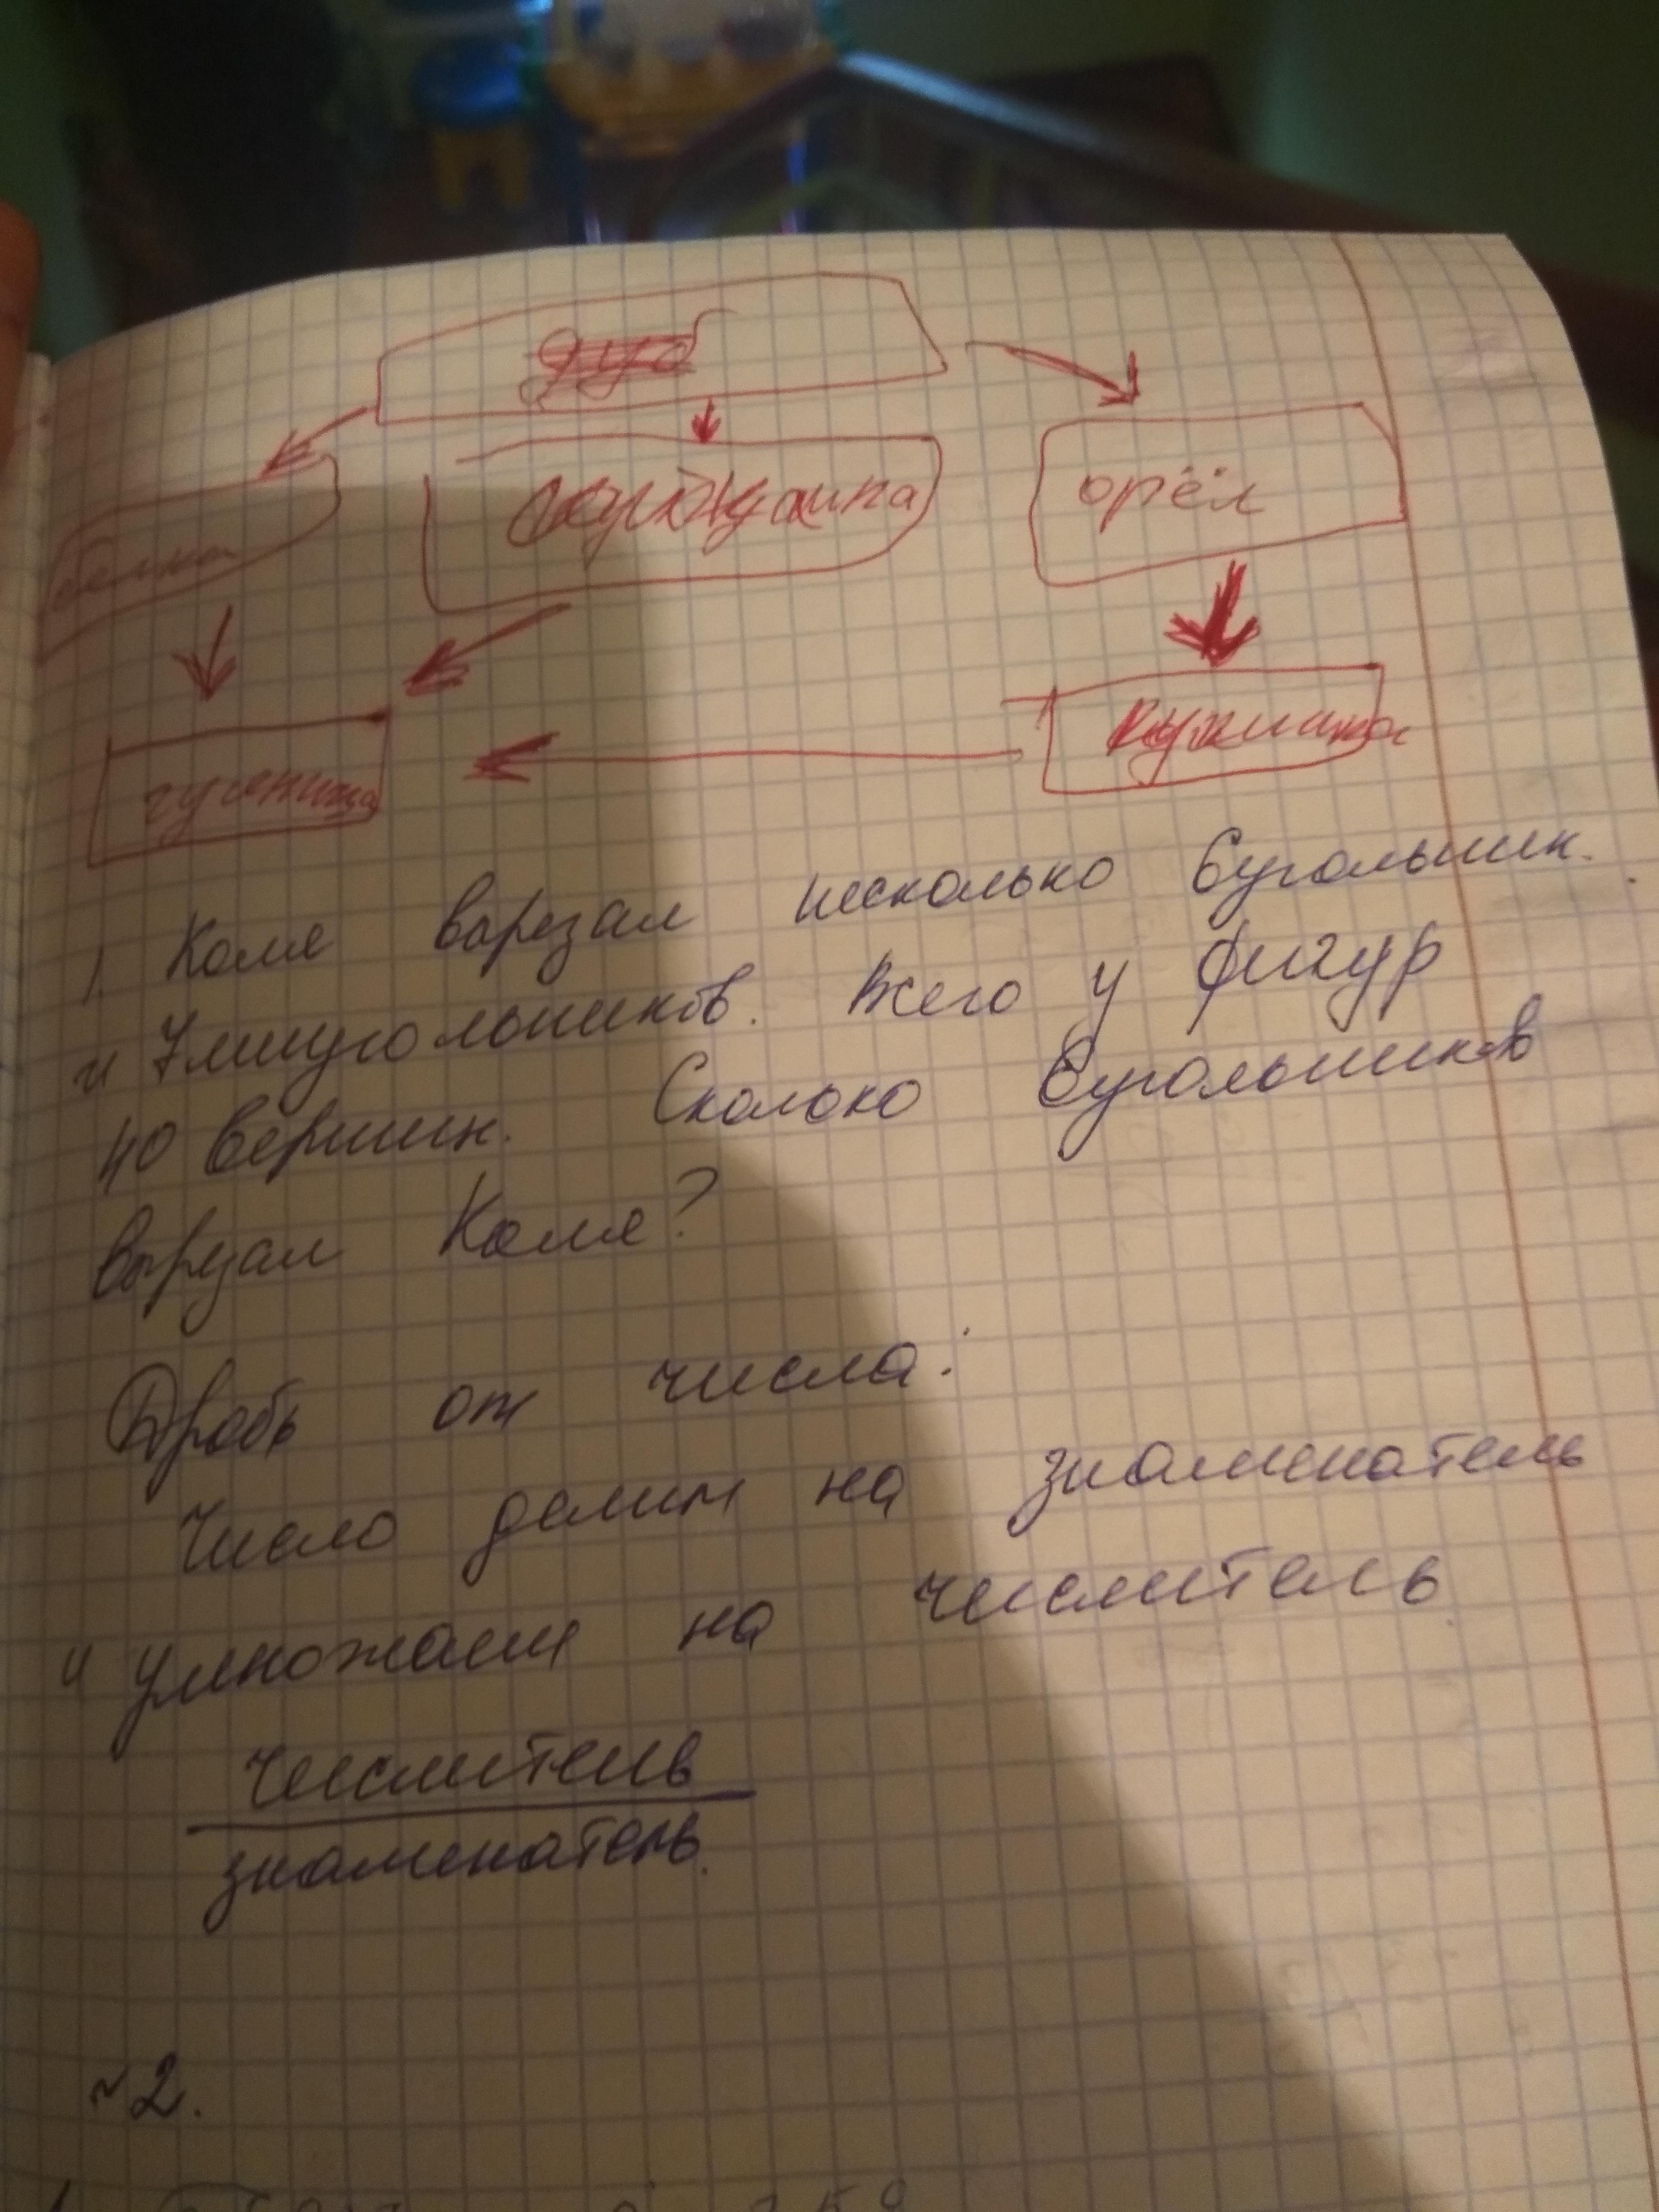 дуб
белка орёл
гусеница
1. Коля варезал несколько 6угольник.
и 7миугольников. Всего у фигур
40 вершин. Сколько 6угольников
вырезал Коля?
Дробь от числа:
Число делим на знаменатель
и умножаем на числитель
числитель
знаменатель.
№2.